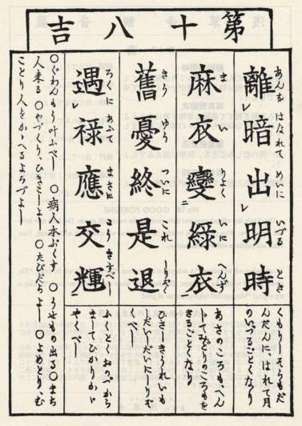 第十八吉
離暗出明時
あんを はなれて めいに いづる とき
くもりしそらもだ
んだんに、はれて月
のいづるごとくなり
麻衣變綠衣
ま い りよく いに へんず
あさのころも、へん
じてみどりのころもを
きるごとくなり
舊憂終是退
きう ゆう ついに これ しりぞく
ひさしきうれいも
しだいだいにしりぞ
くべし
遇禄應交輝
ろくに あふて まさに
ふくとくおのづから
ましてひかりかゞ
やくべし
○ぐわんもう叶ふべし ○病人本ぶくす ○うせもの出る ○まち
人来る ○やづくり、ひきこしよし ○たびだちよし ○よめとり、む
ことり 人をかゝへるよろづよし